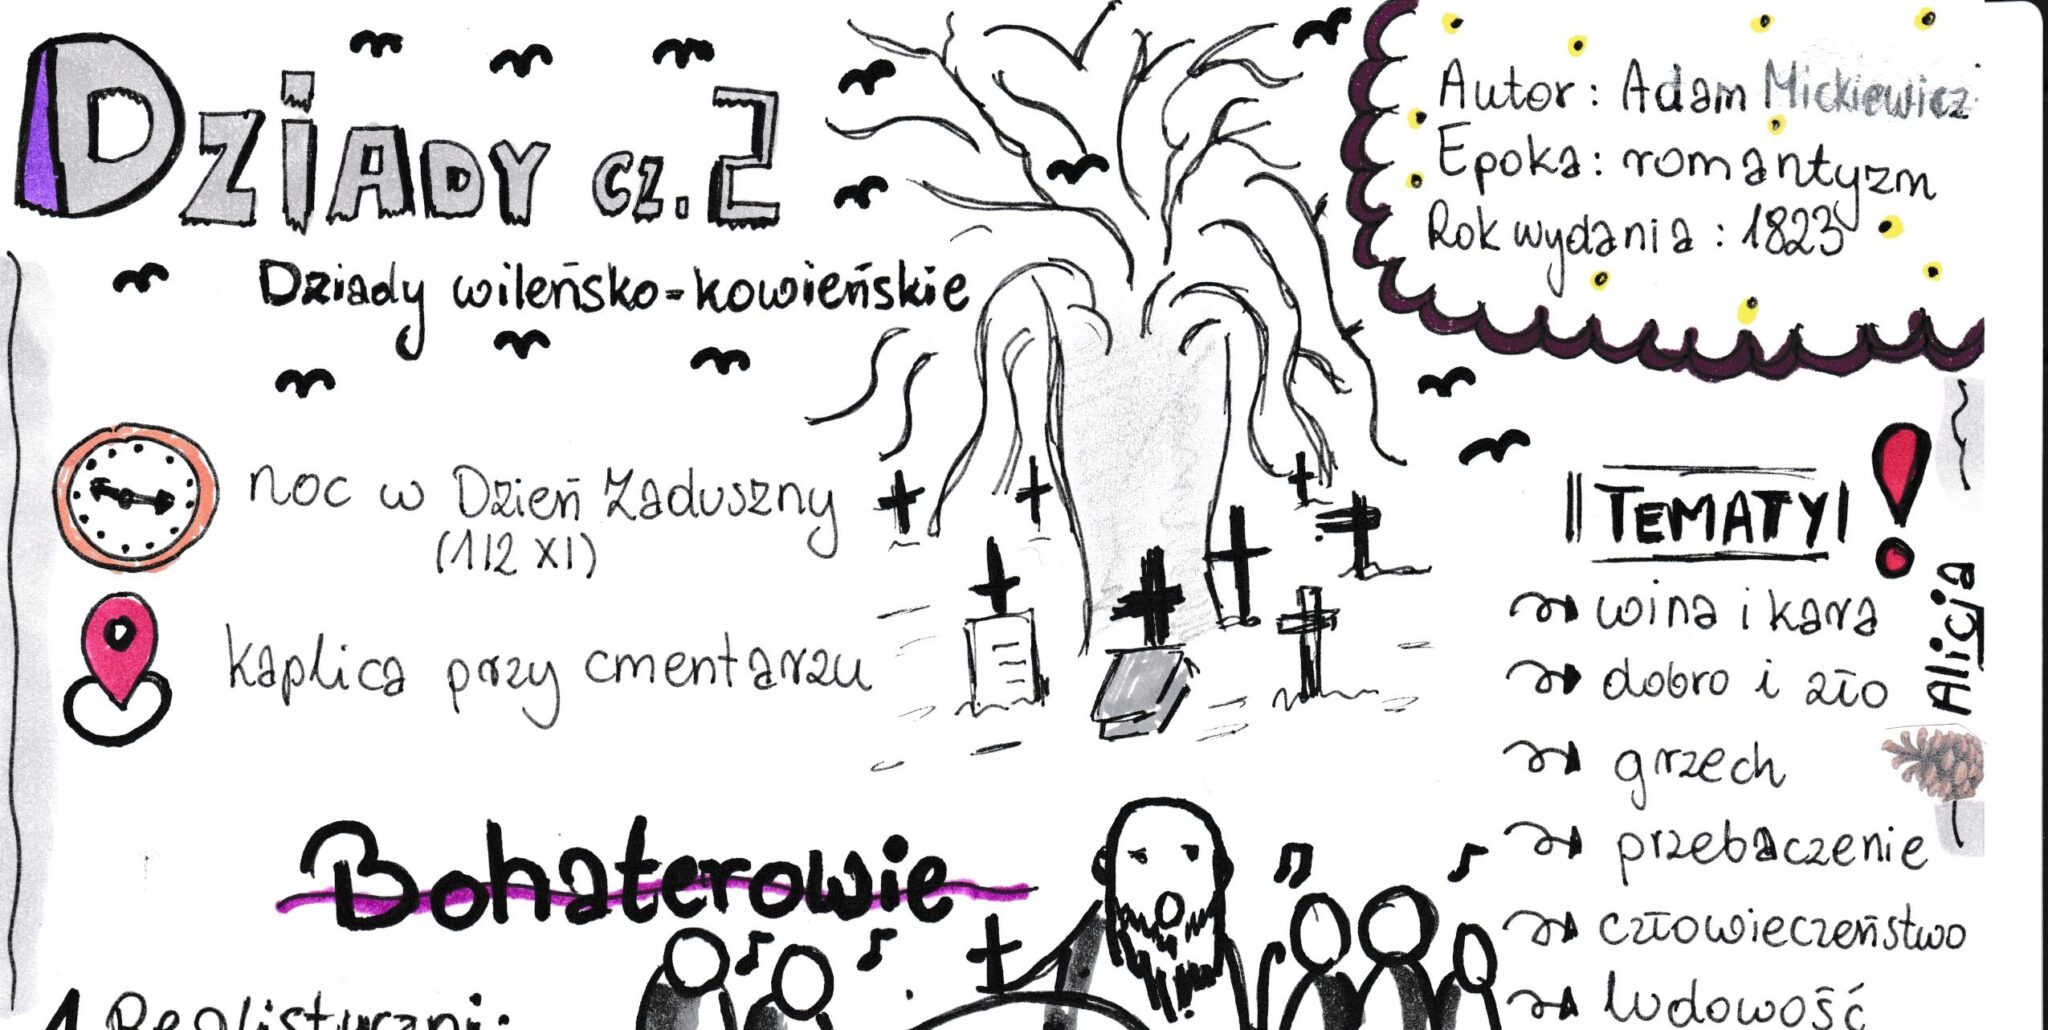 DZIADY cz. 2
Dziady wileńsko-kowieńskie
Autor: Adam Mickiewicz
Epoka: romantyzm
Rok wydania: 1823
noc w Dzień Zaduszny
(1/2 XI)
kaplica przy cmentarzu
TEMATY!
wina i kara
dobro i zło
grzech
przebaczenie
człowieczeństwo
ludowość
Alicja
Bohaterowie
1 Realistyczni: